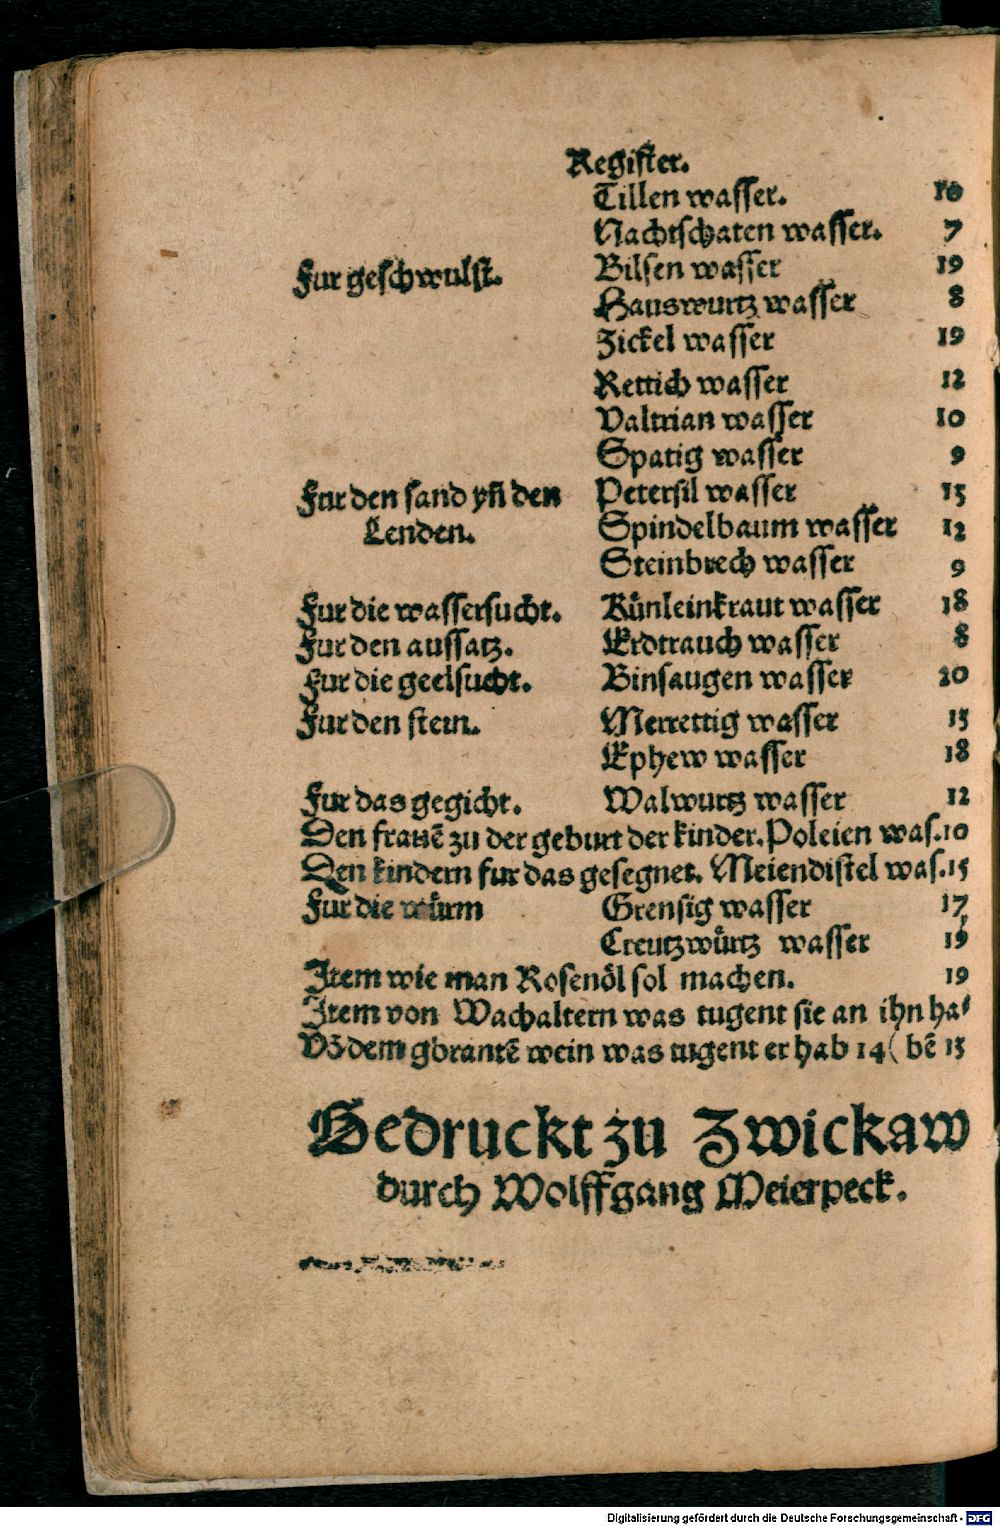 Register.
Tillen wasser. 10
Nachtschaten wasser. 7
Fur geschwulst. Bilsen wasser 19
Hauswurtz wasser 8
Zickel wasser 19
Rettich wasser 12
Valtrian wasser 10
Spatig wasser 9
Fur den sand yñ den Petersil wasser 15
Lenden. Spindelbaum wasser 12
Steinbrech wasser 9
Fur die wassersucht. Künleinkraut wasser 18
Fur den aussatz. Erdtrauch wasser 8
Fur die geelsucht. Binsaugen wasser 20
Fur den stein. Merrettig wasser 15
Ephew wasser 18
Fur das gegicht. Walwurtz wasser 12
Den frauẽ zu der geburt der kinder. Poleien was. 10
Den kindern fur das gesegnet. Meiendistel was. 15
Fur die würm Grensig wasser 17
Creutzwürtz wasser 19
Item wie man Rosenöl sol machen. 19
Item von Wachaltern was tugent sie an ihn ha⸗
Võ dem gbrantẽ wein was tugent er hab 14 ( bẽ 15
Gedruckt zu Zwickaw
durch Wolffgang Meierpeck.
Digitalisierung gefördert durch die Deutsche Forschungsgemeinschaft - DFG